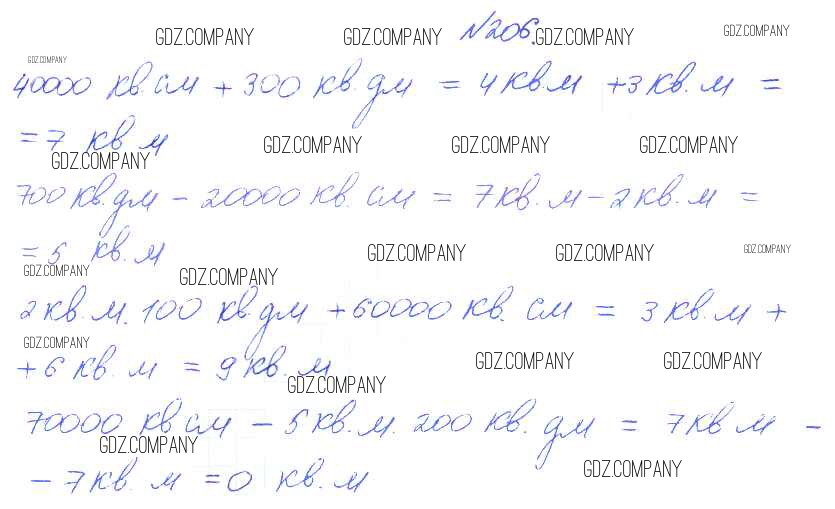 GDZ.COMPANY GDZ.COMPANY N206. GDZ.COMPANY GDZ.COMPANY
GDZ.COMPANY
40000 кв.см + 300 кв.дм = 4кв.м + 3кв.м =
= 7 кв м
GDZ.COMPANY GDZ.COMPANY GDZ.COMPANY GDZ.COMPANY
700кв.дм - 20000кв.см = 7кв.м - 2кв.м =
= 5 кв.м
GDZ.COMPANY GDZ.COMPANY GDZ.COMPANY
GDZ.COMPANY GDZ.COMPANY
2кв.м. 100 кв дм + 60000 кв. см = 3кв.м +
GDZ.COMPANY
+ 6 кв. м = 9кв.м
GDZ.COMPANY GDZ.COMPANY GDZ.COMPANY
70000 кв см - 5кв.м. 200 кв. дм = 7кв м -
GDZ.COMPANY
- 7кв. м = 0 кв.м
GDZ.COMPANY